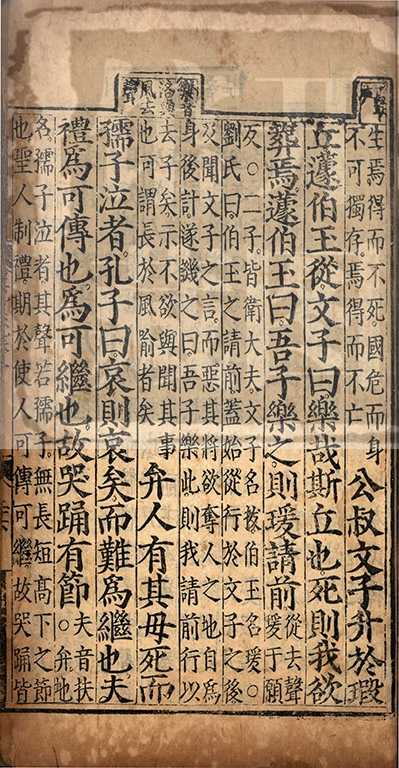 生焉得而不死國危而身
不可獨存焉得而不亡
公叔文子升於瑕
丘蘧伯玉從文子曰樂哉斯丘也死則我欲
葬焉蘧伯玉曰吾子樂之則瑗請前
從去聲
瑗于願
反○二子皆衛大夫文子名㧞伯玉名瑗○
劉氏曰伯玉之請前蓋始從行於文子之後
及聞文子之言而惡其將欲奪人之地自爲
身後計遂譏之曰吾子樂此則我請前行以
樂音
洛與
風去
聲
去子矣示不欲與聞其事
也可謂長於風喻者矣
弁人有其母死而
孺子泣者孔子曰哀則哀矣而難爲繼也夫
禮爲可傳也爲可繼也故哭踊有節
夫音扶
○弁地
名孺子泣者其聲若孺子無長短高下之節
也聖人制禮期於使人可傳可繼故哭踊皆